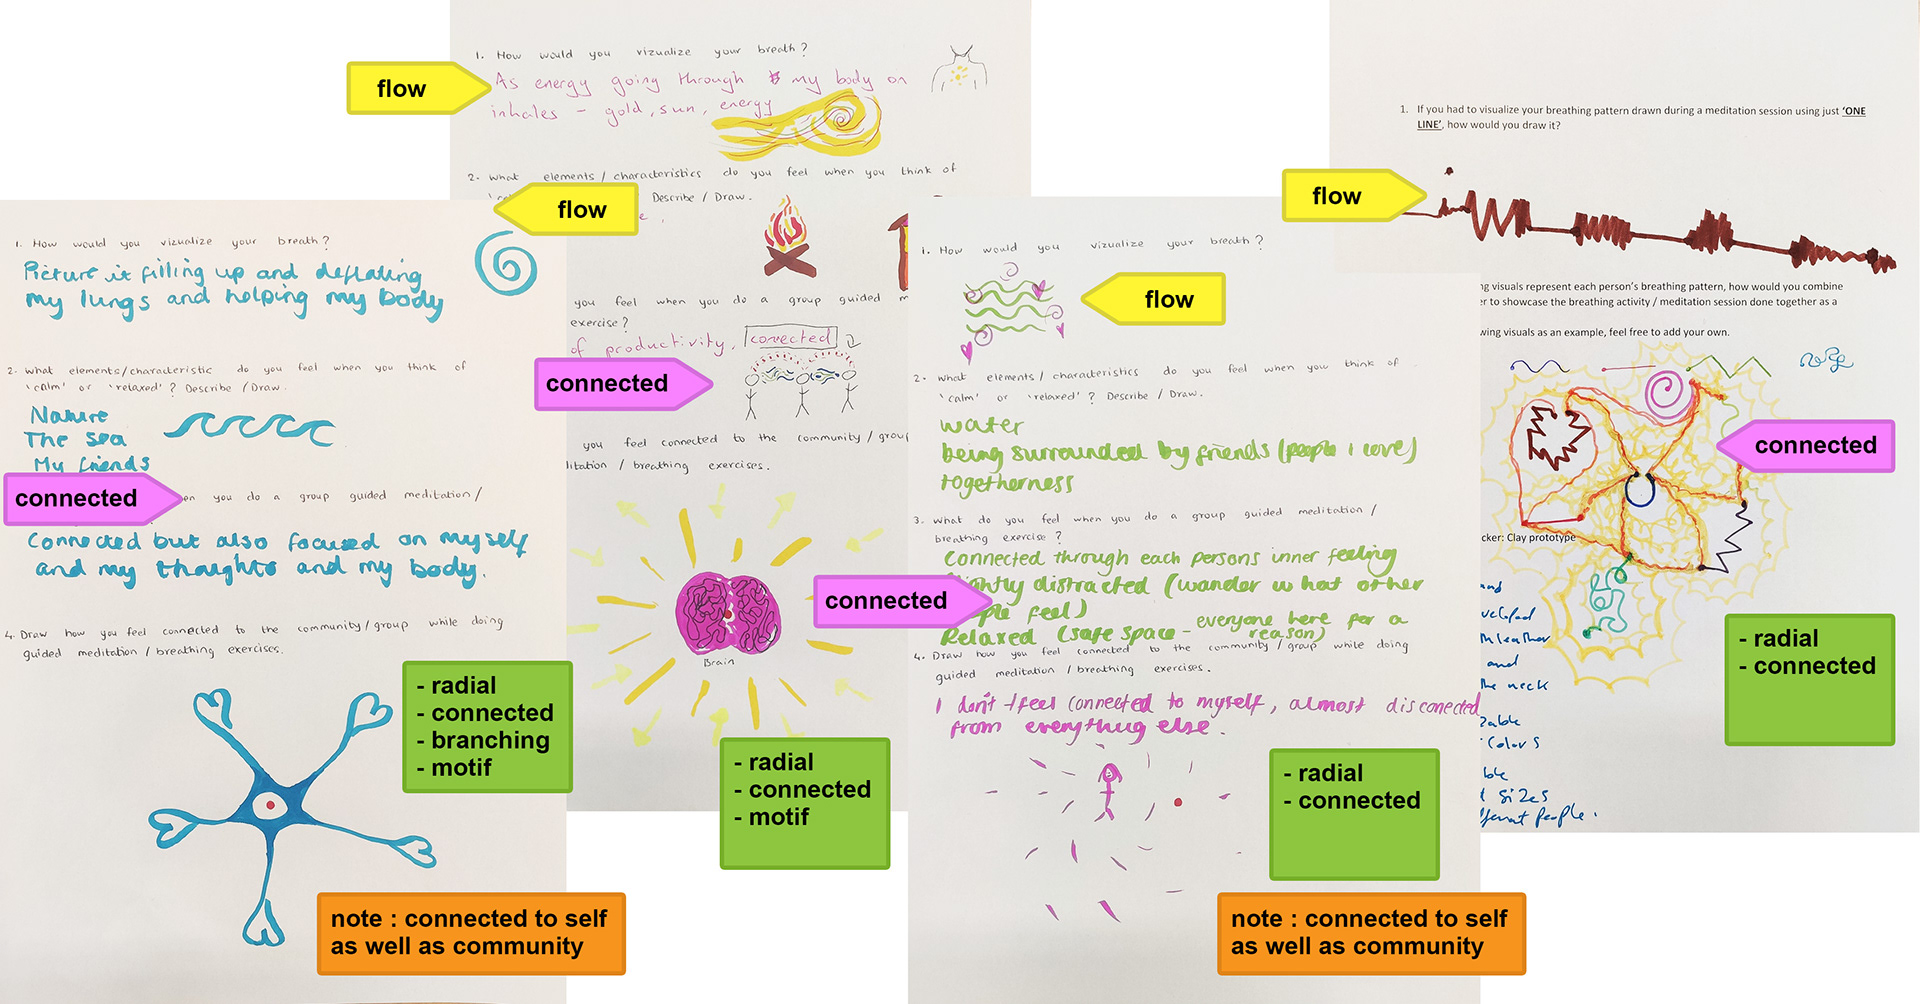 1. How would you vizualize your breath?
flow
As energy going through my body on
inhales - gold, sun, energy
2. What elements / characteristics do you feel when you think of
Describe / Draw.
flow
you feel when you do a group guided m
exercise?
of productivity, connected
connected
you feel connected to the community / group
litation / breathing exercises.
Brain
- radial
- connected
- motif
1. How would you vizualize your breath?
Picture it filling up and deflating
my lungs and helping my body
2. What elements/characteristic do you feel when you think of
'calm' or 'relaxed'? Describe / Draw.
Nature
The sea
My friends
connected
en you do a group guided meditation /
Connected but also focused on myself
and my thoughts and my body.
4. Draw how you feel connected to the community/group while doing
guided meditation / breathing exercises.
- radial
- connected
- branching
- motif
note : connected to self
as well as community
1. How would you vizualize your breath?
flow
2. What elements / characteristics do you feel when you think of
'calm' or 'relaxed'? Describe / Draw.
water
being surrounded by friends (people i love)
togetherness
3. What do you feel when you do a group guided meditation /
breathing exercise?
Connected through each persons inner feeling
connected
ightly distracted (wander what other
ple feel)
Relaxed (safe space - everyone here for a
reason)
4. Draw how you feel connected to the community / group while doing
guided meditation / breathing exercises.
I don't feel connected to myself, almost disconected
from everything else.
- radial
- connected
note : connected to self
as well as community
1. If you had to visualize your breathing pattern drawn during a meditation session using just 'ONE
LINE', how would you draw it?
flow
ng visuals represent each person's breathing pattern, how would you combine
er to showcase the breathing activity / meditation session done together as a
wing visuals as an example, feel free to add your own.
connected
cker: Clay prototype
leather
and
the neck
colors
sizes
people.
- radial
- connected